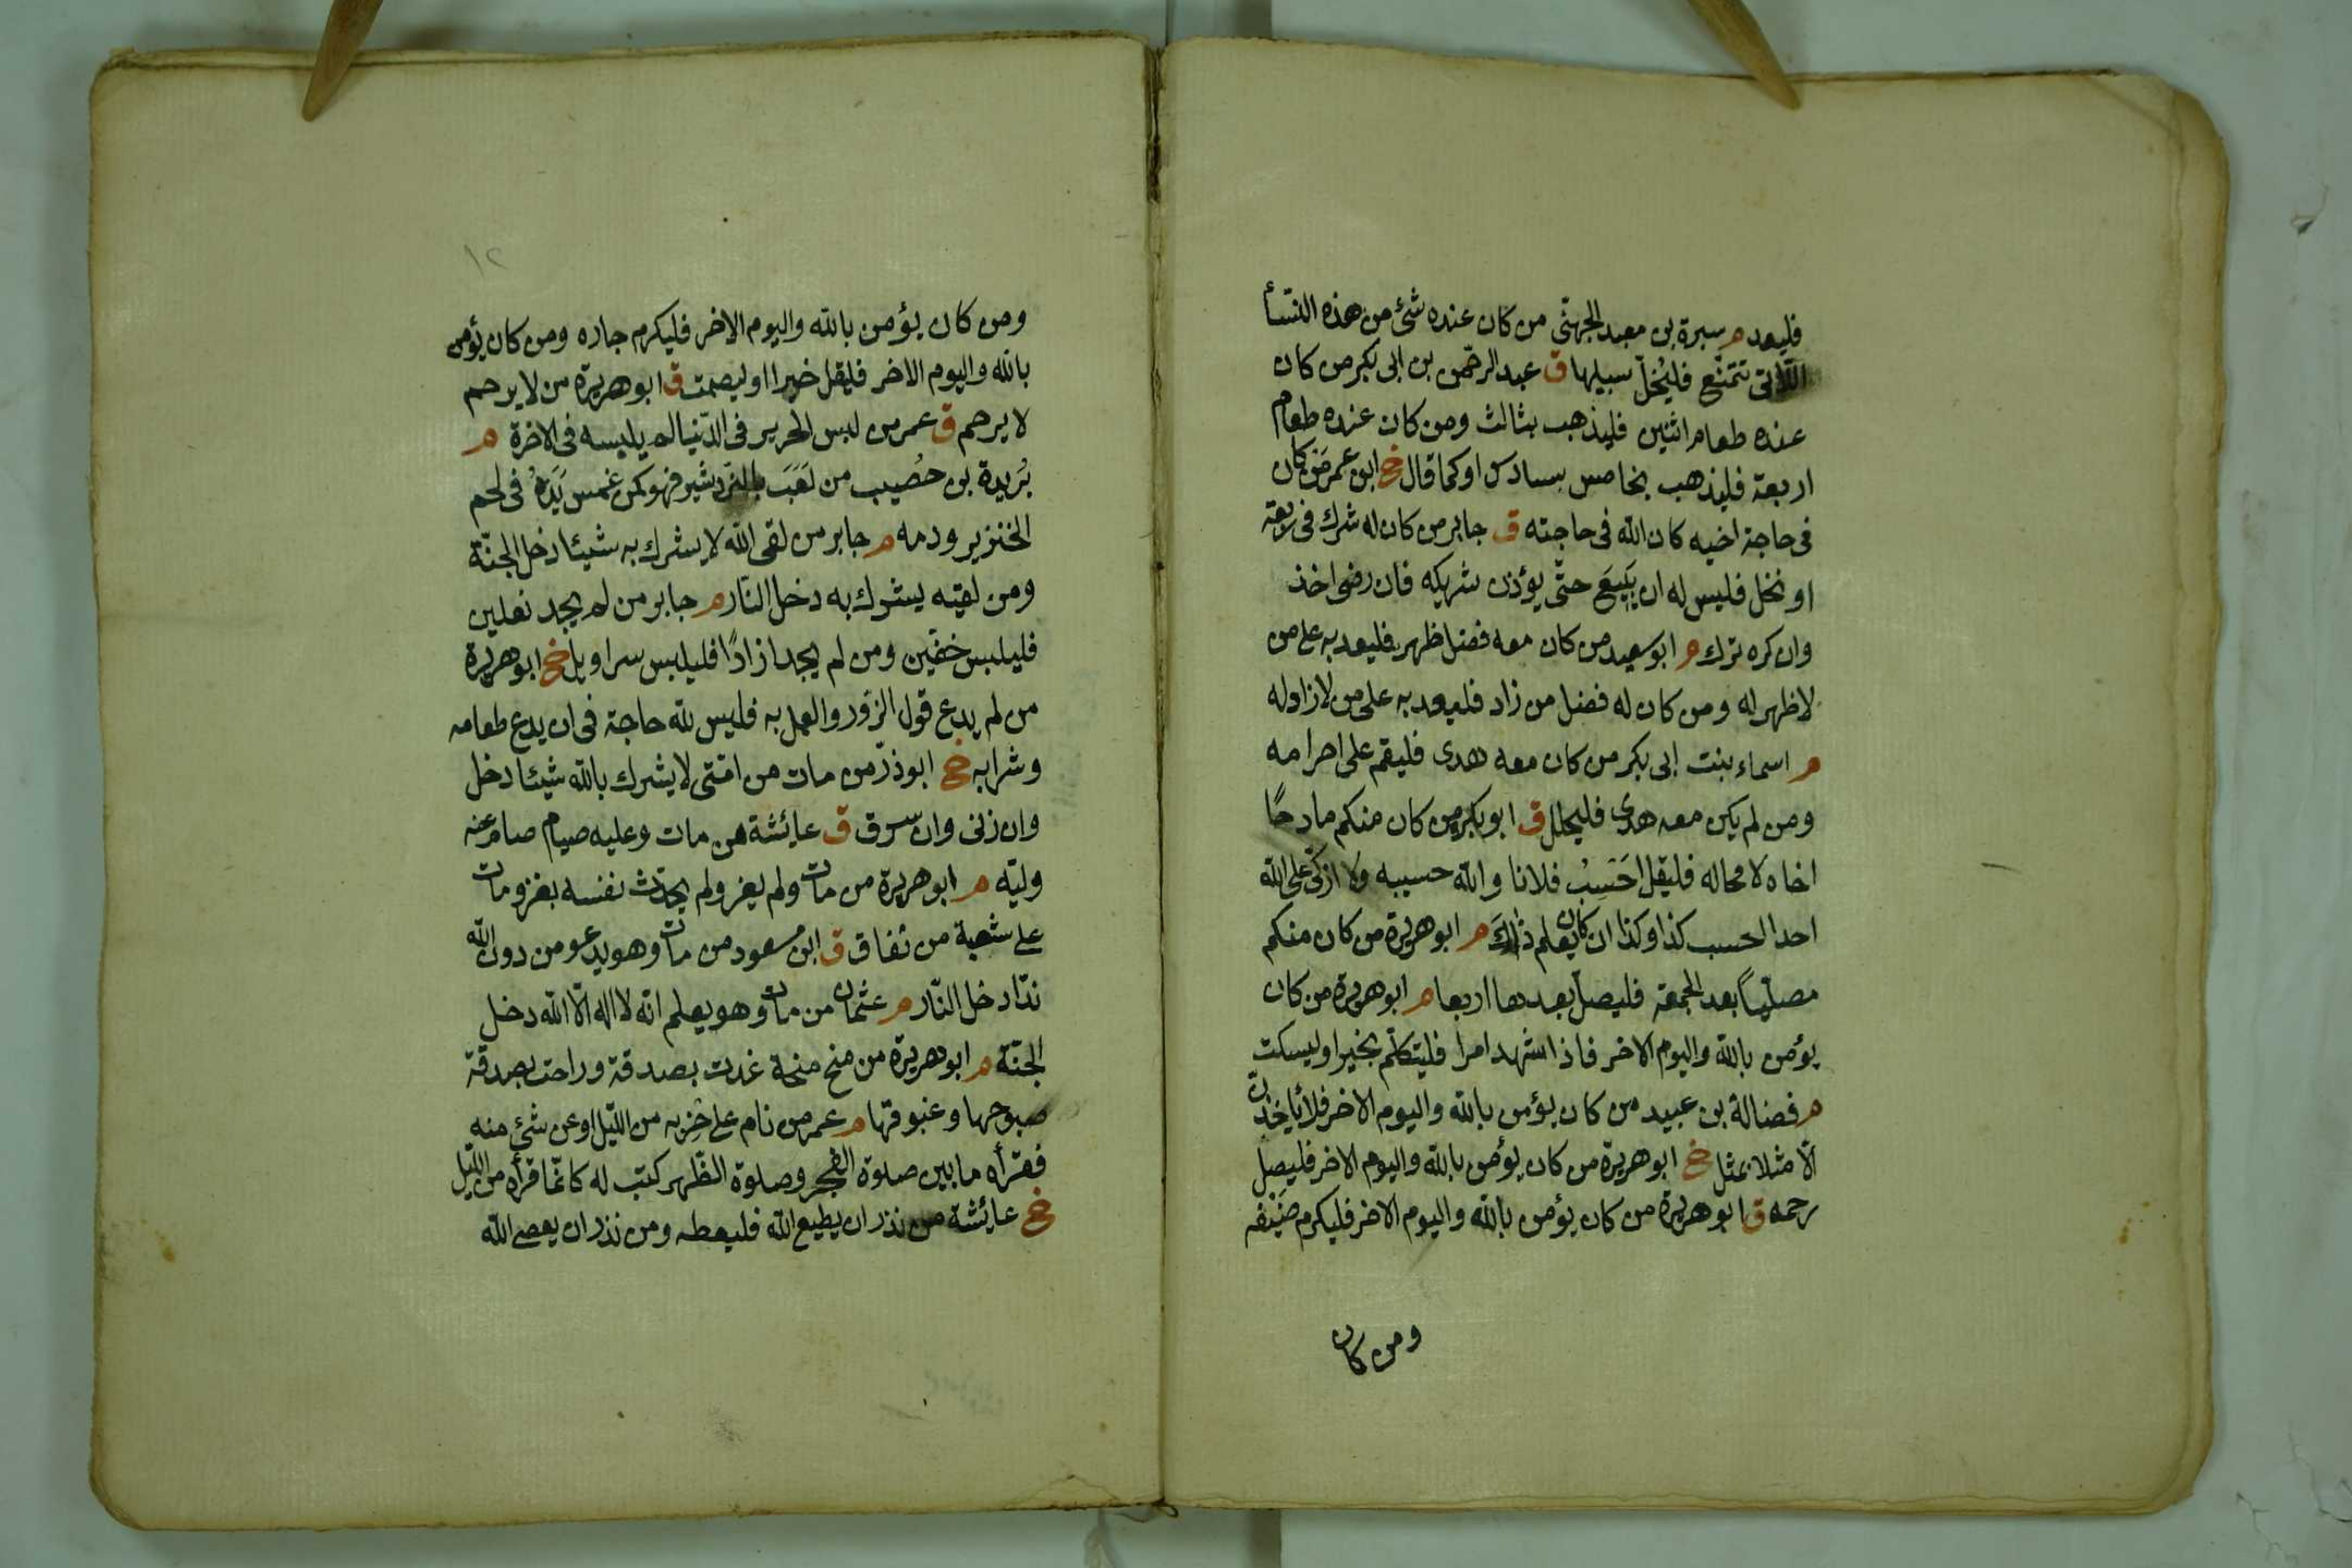 فليعد م سبرة بن معبد الجهنّى من كان عنده شئ من هذه النسآ
اللّاتى تتمتّع فليُخلّ سبيلها ق عبد الرحمن بن ابى بكر من كان
عنده طعام اثنين فليذهب بثالث ومن كان عنده طعام
اربعة فليذهب بخامس بسادس او كما قال خ ابن عمر مَن كان
فى حاجة اخيه كان الله فى حاجته ق جابر من كان له شرك فى ربعة
او نخل فليس له ان يَبيعَ حتّى يؤذن شريكه فان رضى اخذ
وان كره ترك م ابو سعيد من كان معه فضل ظهر فليعد به على من
لا ظهر له ومن كان له فضل من زاد فليعد به على من لا زاد له
م اسماء بنت ابى بكر من كان معه هدى فليقم على احرامه
ومن لم يكن معه هدى فليحلل ق ابو بكر من كان منكم مادحًا
اخاه لا محاله فليقل احَسِبُ فلانا والله حسيبه ولا ازكّى على الله
احدا احسب كذا وكذا ان كان يعلم ذلكَ م ابو هريرة من كان منكم
مصلّيًا بعد الجمعة فليصلّ بعدها اربعا م ابو هريرة من كان
يؤمن بالله واليوم الاخر فاذا شهد امرا فليتكلّم بخير او ليسكت
م فضالة بن عبيد من كان يؤمن بالله واليوم الاخر فلا يأخذنّ
الّا مثلا بمثل خ ابو هريرة من كان يؤمن بالله واليوم الاخر فليصل
رحمه ق ابو هريرة من كان يؤمن بالله واليوم الاخر فليكرم ضَيْفه
ومن كان
١٢
ومن كان يؤمن بالله واليوم الاخر فليكرم جاره ومن كان يؤمن
بالله واليوم الاخر فليقل خيرا او ليصمت ق ابو هريرة من لا يرحم
لا يرحم ق عمر من لبس الحرير فى الدّنيا لم يلبسه فى الاخرة م
بُريدة بن حُصيب من لَعَبَ بالنردشير فهو كمن غمس يَدَهُ فى لحم
الخنزير ودمه م جابر من لقى الله لا يشرك به شيئا دخل الجنّة
ومن لقيه يشرك به دخل النّار م جابر من لم يجد نعلين
فليلبس خفّين ومن لم يجد ازارًا فليلبس سراويل خ ابو هريرة
من لم يدع قول الزّور والعمل به فليس لله حاجة فى ان يدع طعامه
وشرابه خ ابو ذرّ من مات من امّتى لا يشرك بالله شيئا دخل
وان زنى وان سرق ق عايئشة من مات وعليه صيام صام عنه
وليّه م ابو هريرة من مات ولم يغز ولم يحدّث نفسه بغزو مات
على شعبة من نفاق ق ابن مسعود من مات وهو يدعو من دون الله
ندّا دخل النّار م عثمان من مات وهو يعلم انّه لا اله الّا الله دخل
الجنّة م ابو هريرة من منح منحة غدت بصدقة وراحت بصدقة
صبوحها وغبوقها م عمر من نام على حزبه من اللّيل او عن شئ منه
فقرأه ما بين صلوة الفجر وصلوة الظّهر كتب له كانّما قرأه من اللّيل
خ عايئشة من نذر ان يطيع الله فليعطه ومن نذر ان يعصى الله